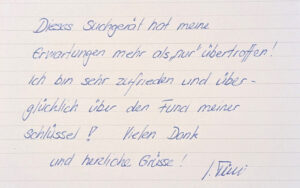 Dieses Suchgerät hat meine
Erwartungen mehr als „nur" übertroffen!
Ich bin sehr zufrieden und über-
glücklich über den Fund meiner
Schlüssel! Vielen Dank
und herzliche Grüsse!